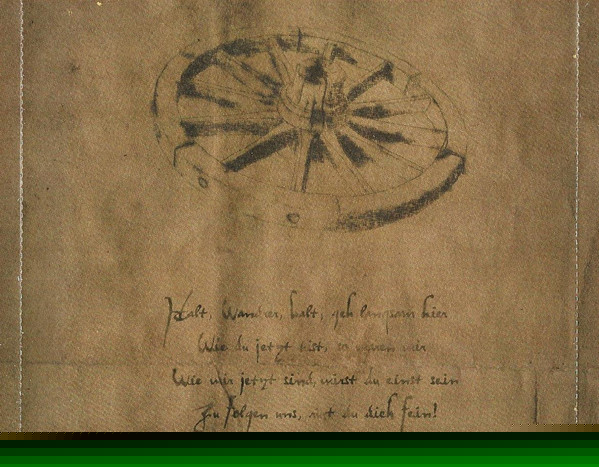 Halt, Wandrer, halt, geh langsam hier
Wie du jetzt bist, so waren wir
Wie wir jetzt sind, wirst du einst sein
Zu folgen uns, rüst du dich fein!